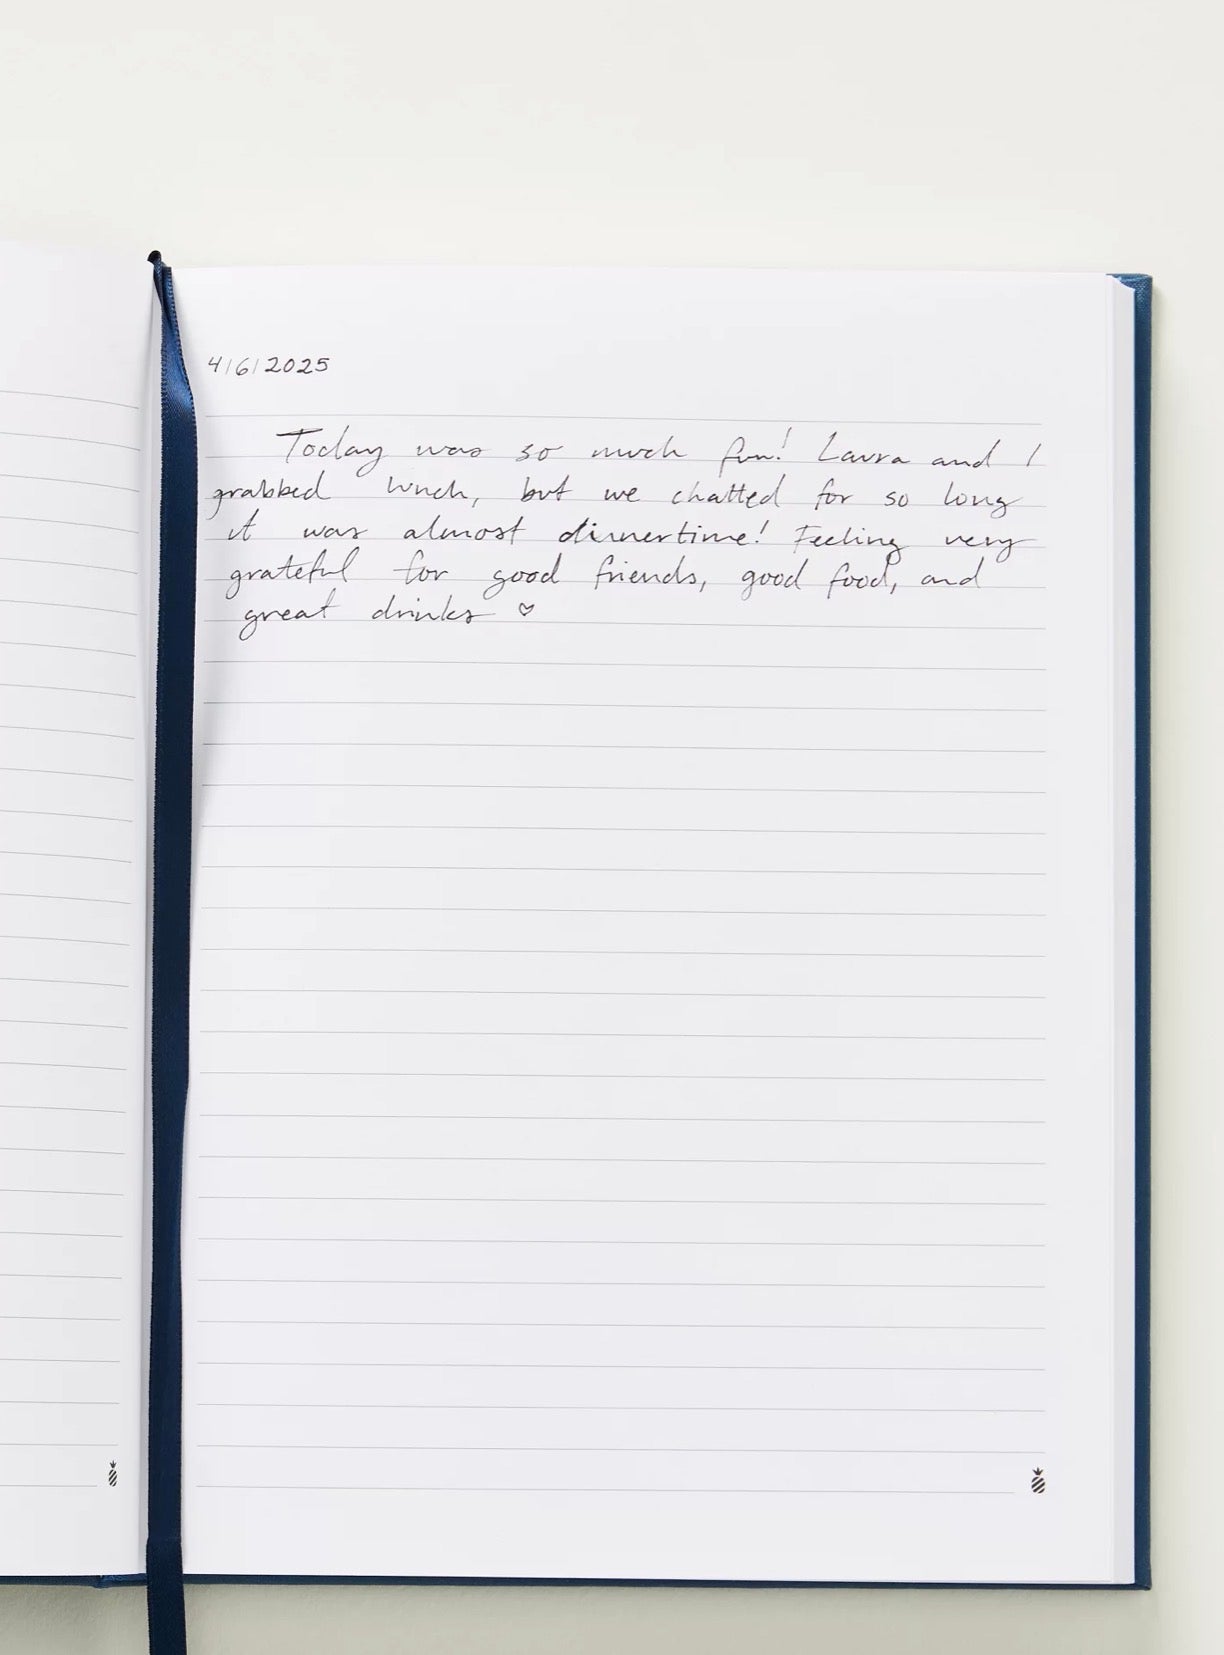 4/6/2025
Today was so much fun! Laura and I
grabbed lunch, but we chatted for so long
it was almost dinnertime! Feeling very
grateful for good friends, good food, and
great drinks ♡